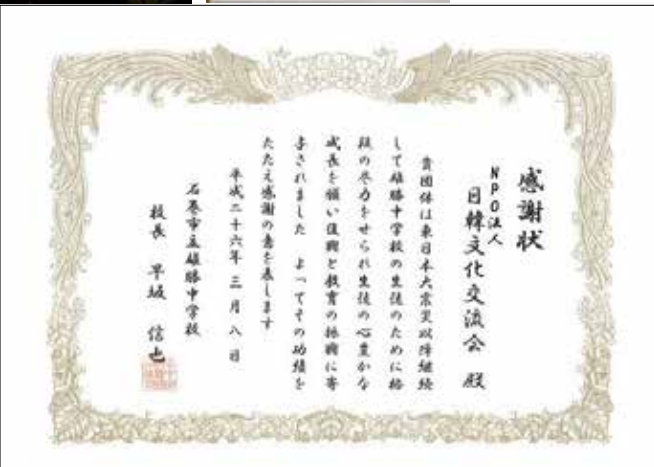 感謝状
NPO法人
日韓文化交流会 殿
貴団体は東日本大震災以降継続
して雄勝中学校の生徒のために格
段の尽力をせられ生徒の心豊かな
成長を願い復興と教育の振興に寄
与されました よってその功績を
たたえ感謝の意を表します
平成二十六年三月八日
石巻市立雄勝中学校
校長 早坂 信也